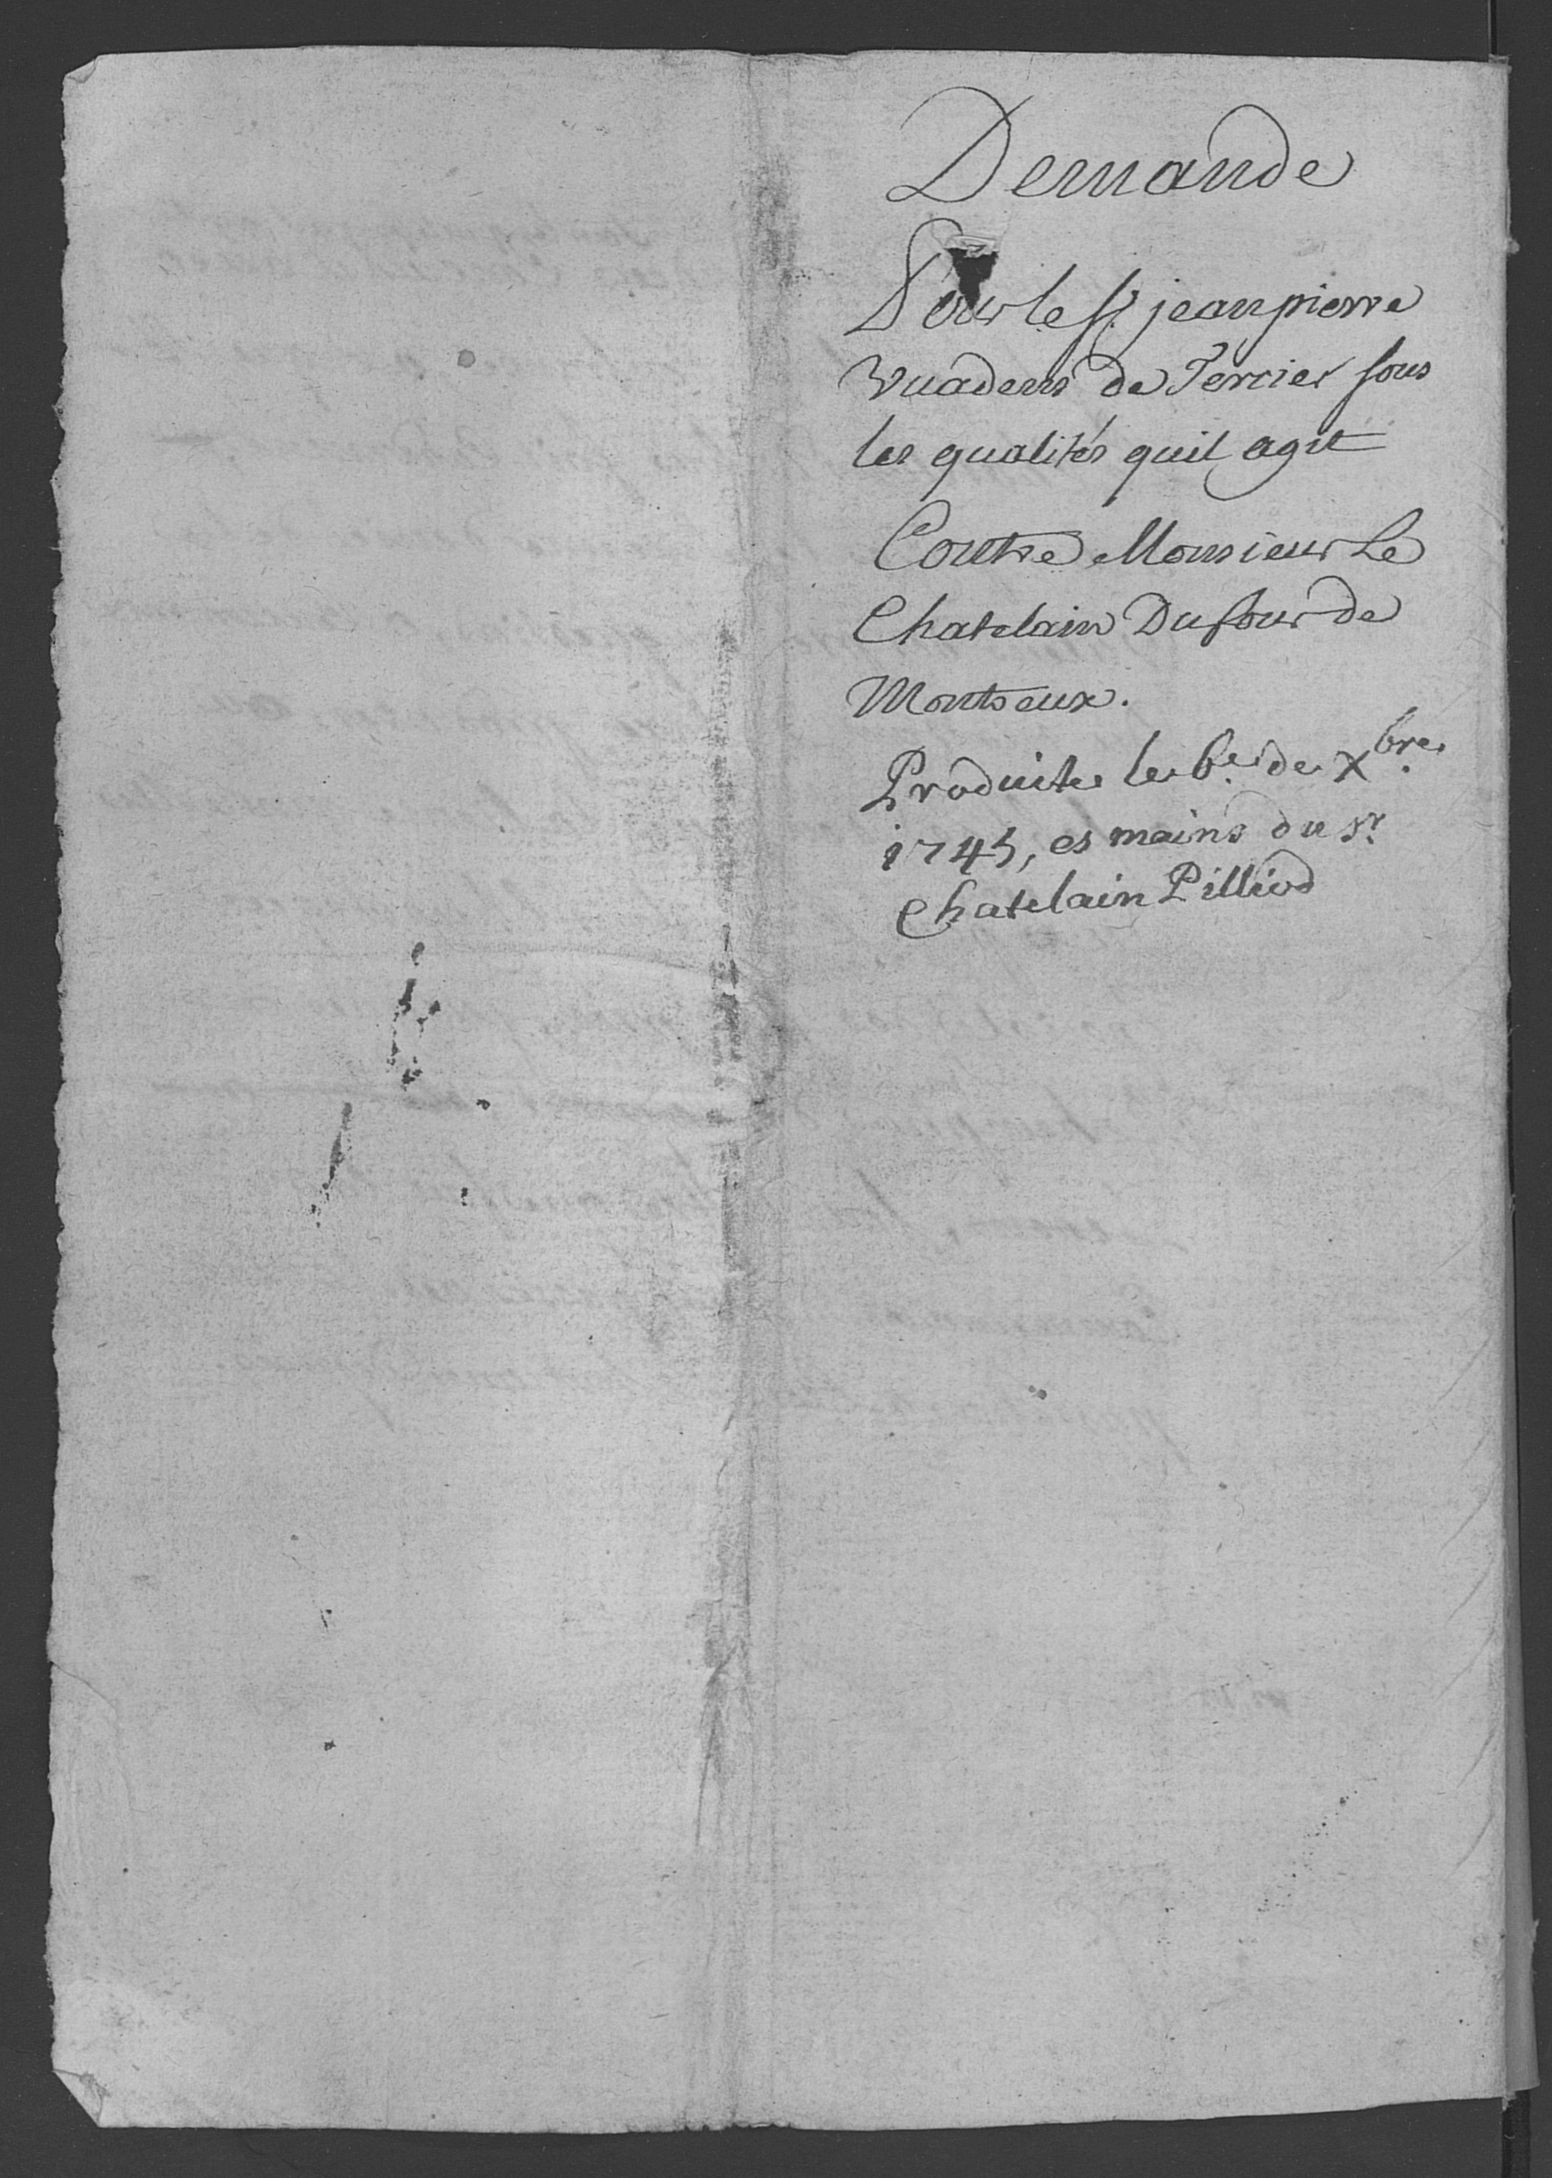 Demande
Pour le Sr. jean pierre
Vuadens de Tercier sous
les qualités quil agit
Contre Monsieur Le
Chatelain Dufour de
Montreux.
Produite le 6e. de Xbre.
1745, es mains du Sr.
Chatelain Pilliod